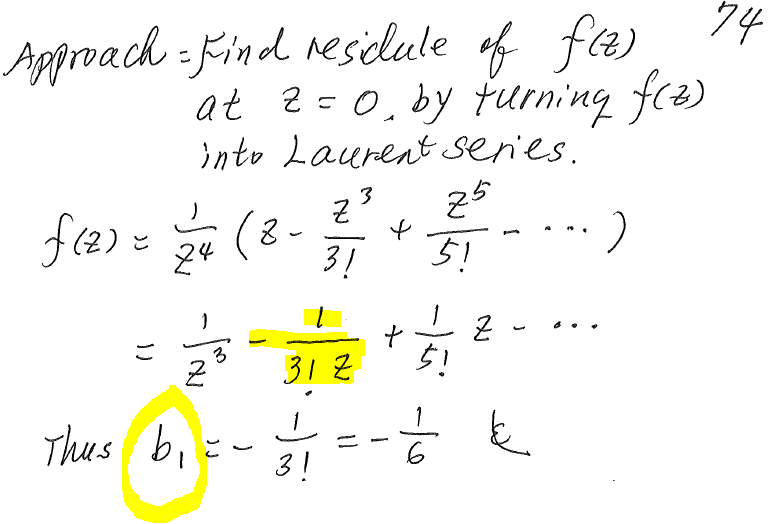 74
Approach = Find residule of f(z)
at z = 0, by turning f(z)
into Laurent series.
f(z) = 1/z⁴ (z - z³/3! + z⁵/5! - ....)
= 1/z³ - 1/3! z + 1/5! z - ...
Thus b₁ = - 1/3! = - 1/6